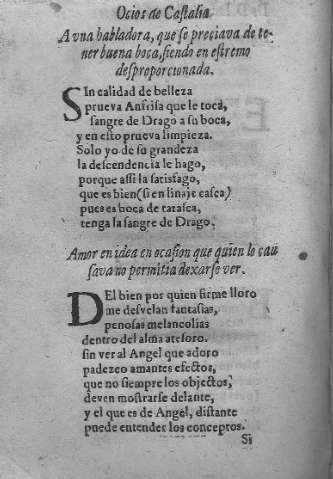 Ocios de Castalia
A vna habladora, que se preciava de te-
ner buena boca, siendo en estremo
desproporcionada.
SIn calidad de belleza
prueva Anfrisa que le toca,
sangre de Drago a su boca,
y en esto prueva limpieza.
Solo yo de su grandeza
la descendencia le hago,
porque assi la satisfago,
que es bien (si en linaje casca)
pues es boca de tarasca,
tenga la sangre de Drago.
Amor en idea en ocasion que quien lo cau
sava no permitia dexarse ver.
DEl bien por quien firme lloro
me desvelan fantasias,
penosas melancolias
dentro del alma atesoro.
sin ver al Angel que adoro
padezco amantes efectos,
que no siempre los objectos,
deven mostrarse delante,
y el que es de Angel, distante
puede entender los conceptos.
Si